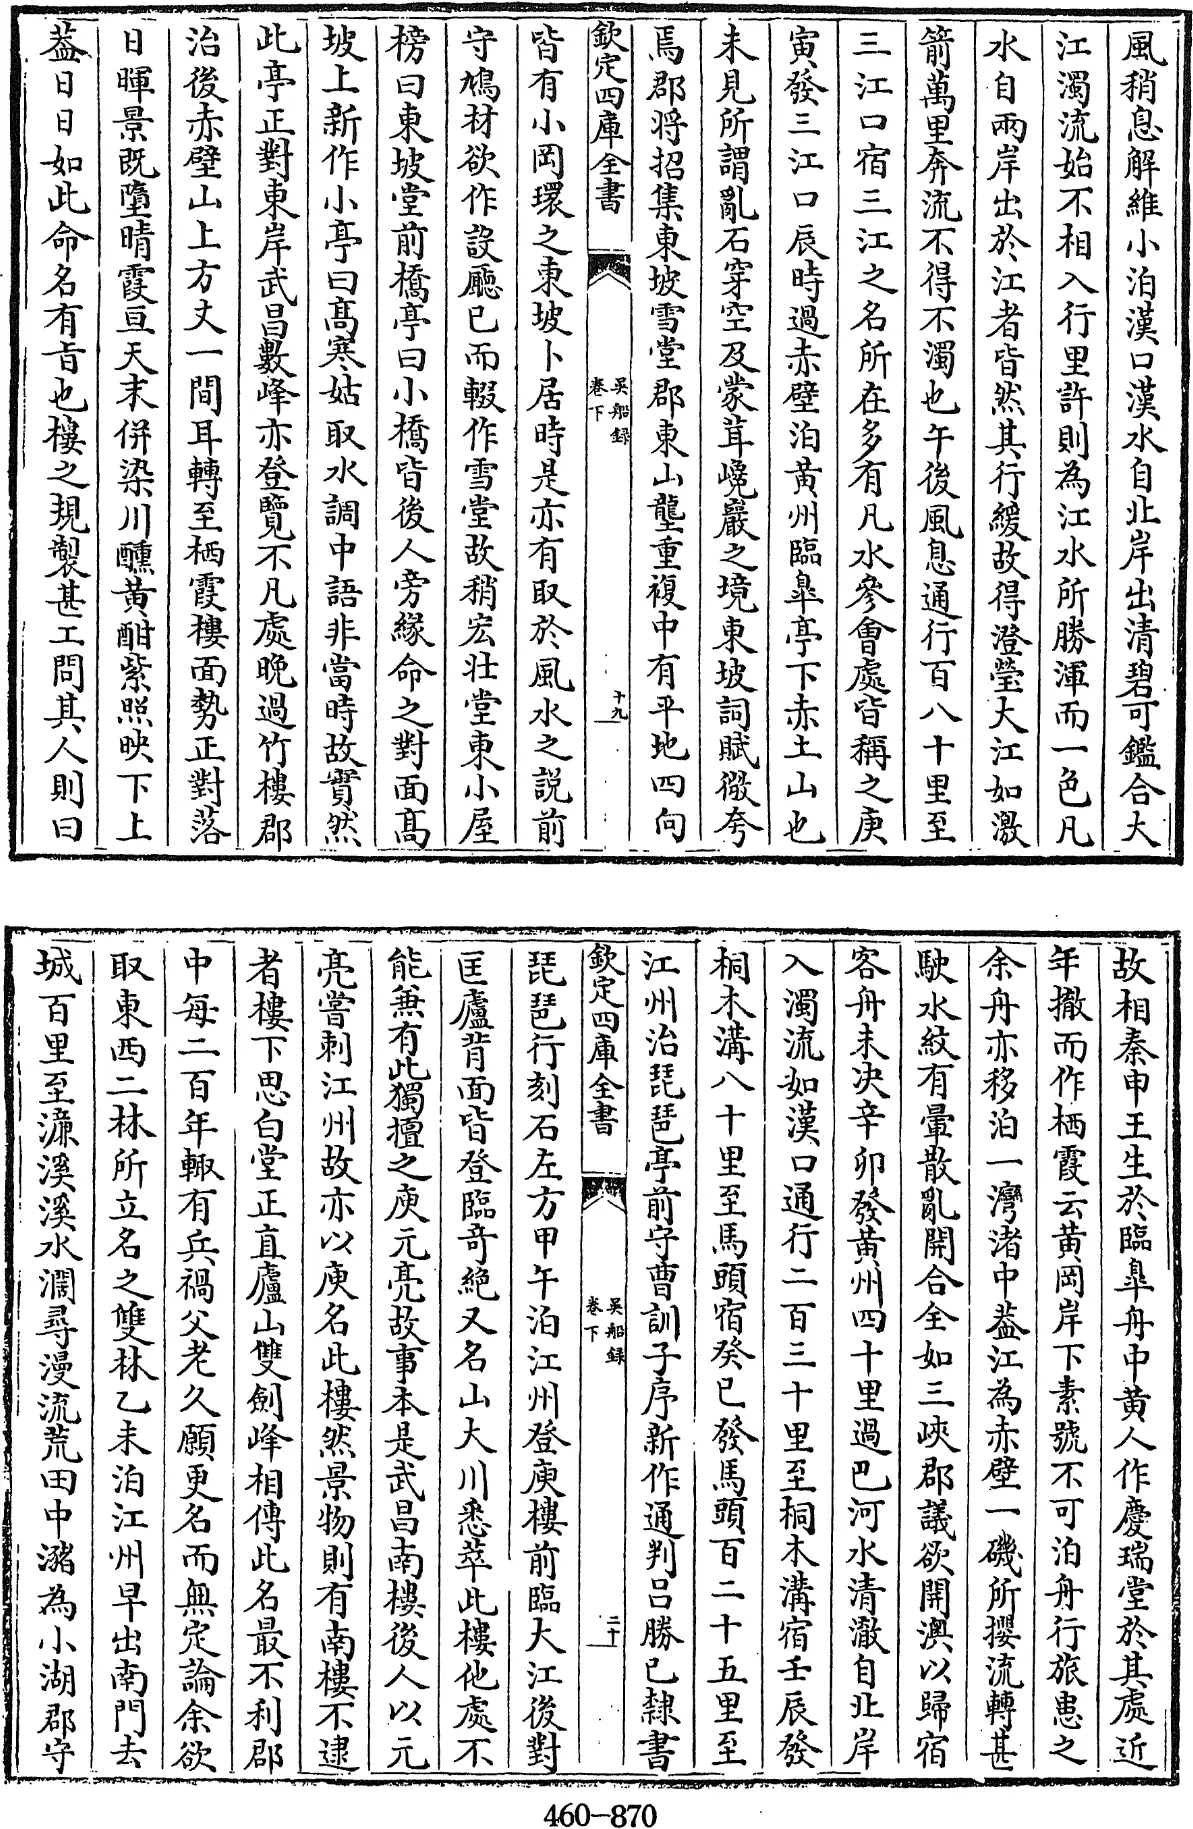 風稍息解維小泊漢口漢水自北岸出清碧可鑑合大
江濁流始不相入行里許則為江水所勝渾而一色凡
水自兩岸出於江者皆然其行緩故得澄瑩大江如激
箭萬里奔流不得不濁也午後風息通行百八十里至
三江口宿三江之名所在多有凡水參會處皆稱之庚
寅發三江口辰時過赤壁泊黄州臨臯亭下赤土山也
未見所謂亂石穿空及蒙茸巉巖之境東坡詞賦微夸
焉郡将招集東坡雪堂郡東山壟重複中有平地四向
欽定四庫全書
吳船録
卷下
十九
皆有小岡環之東坡卜居時是亦有取於風水之説前
守鳩材欲作設廳已而輟作雪堂故稍宏壯堂東小屋
榜曰東坡堂前橋亭曰小橋皆後人旁緣命之對面髙
坡上新作小亭曰髙寒姑取水調中語非當時故實然
此亭正對東岸武昌數峰亦登覽不凡處晩過竹樓郡
治後赤壁山上方丈一間耳轉至栖霞樓面勢正對落
日暉景既墮晴霞亘天末併染川醺黄酣紫照映下上
葢日日如此命名有㫖也樓之規製甚工問其人則曰
故相秦申王生於臨臯舟中黄人作慶瑞堂於其處近
年撤而作栖霞云黄岡岸下素號不可泊舟行旅患之
余舟亦移泊一灣渚中葢江為赤壁一磯所攖流轉甚
駛水紋有暈散亂開合全如三峽郡議欲開澳以歸宿
客舟未决辛卯發黄州四十里過巴河水清澈自北岸
入濁流如漢口通行二百三十里至桐木溝宿壬辰發
桐木溝八十里至馬頭宿癸巳發馬頭百二十五里至
江州治琵琶亭前守曹訓子序新作通判吕勝已隸書
欽定四庫全書
吳船録
卷下
二十
琵琶行刻石左方甲午泊江州登庾樓前臨大江後對
匡廬背面皆登臨奇絶又名山大川悉萃此樓他處不
能兼有此獨擅之庾元亮故事本是武昌南樓後人以元
亮嘗刺江州故亦以庾名此樓然景物則有南樓不逮
者樓下思白堂正直廬山雙劍峰相傳此名最不利郡
中每二百年輙有兵禍父老久願更名而無定論余欲
取東西二林所立名之雙林乙未泊江州早出南門去
城百里至濂溪溪水濶尋漫流荒田中瀦為小湖郡守
460-870